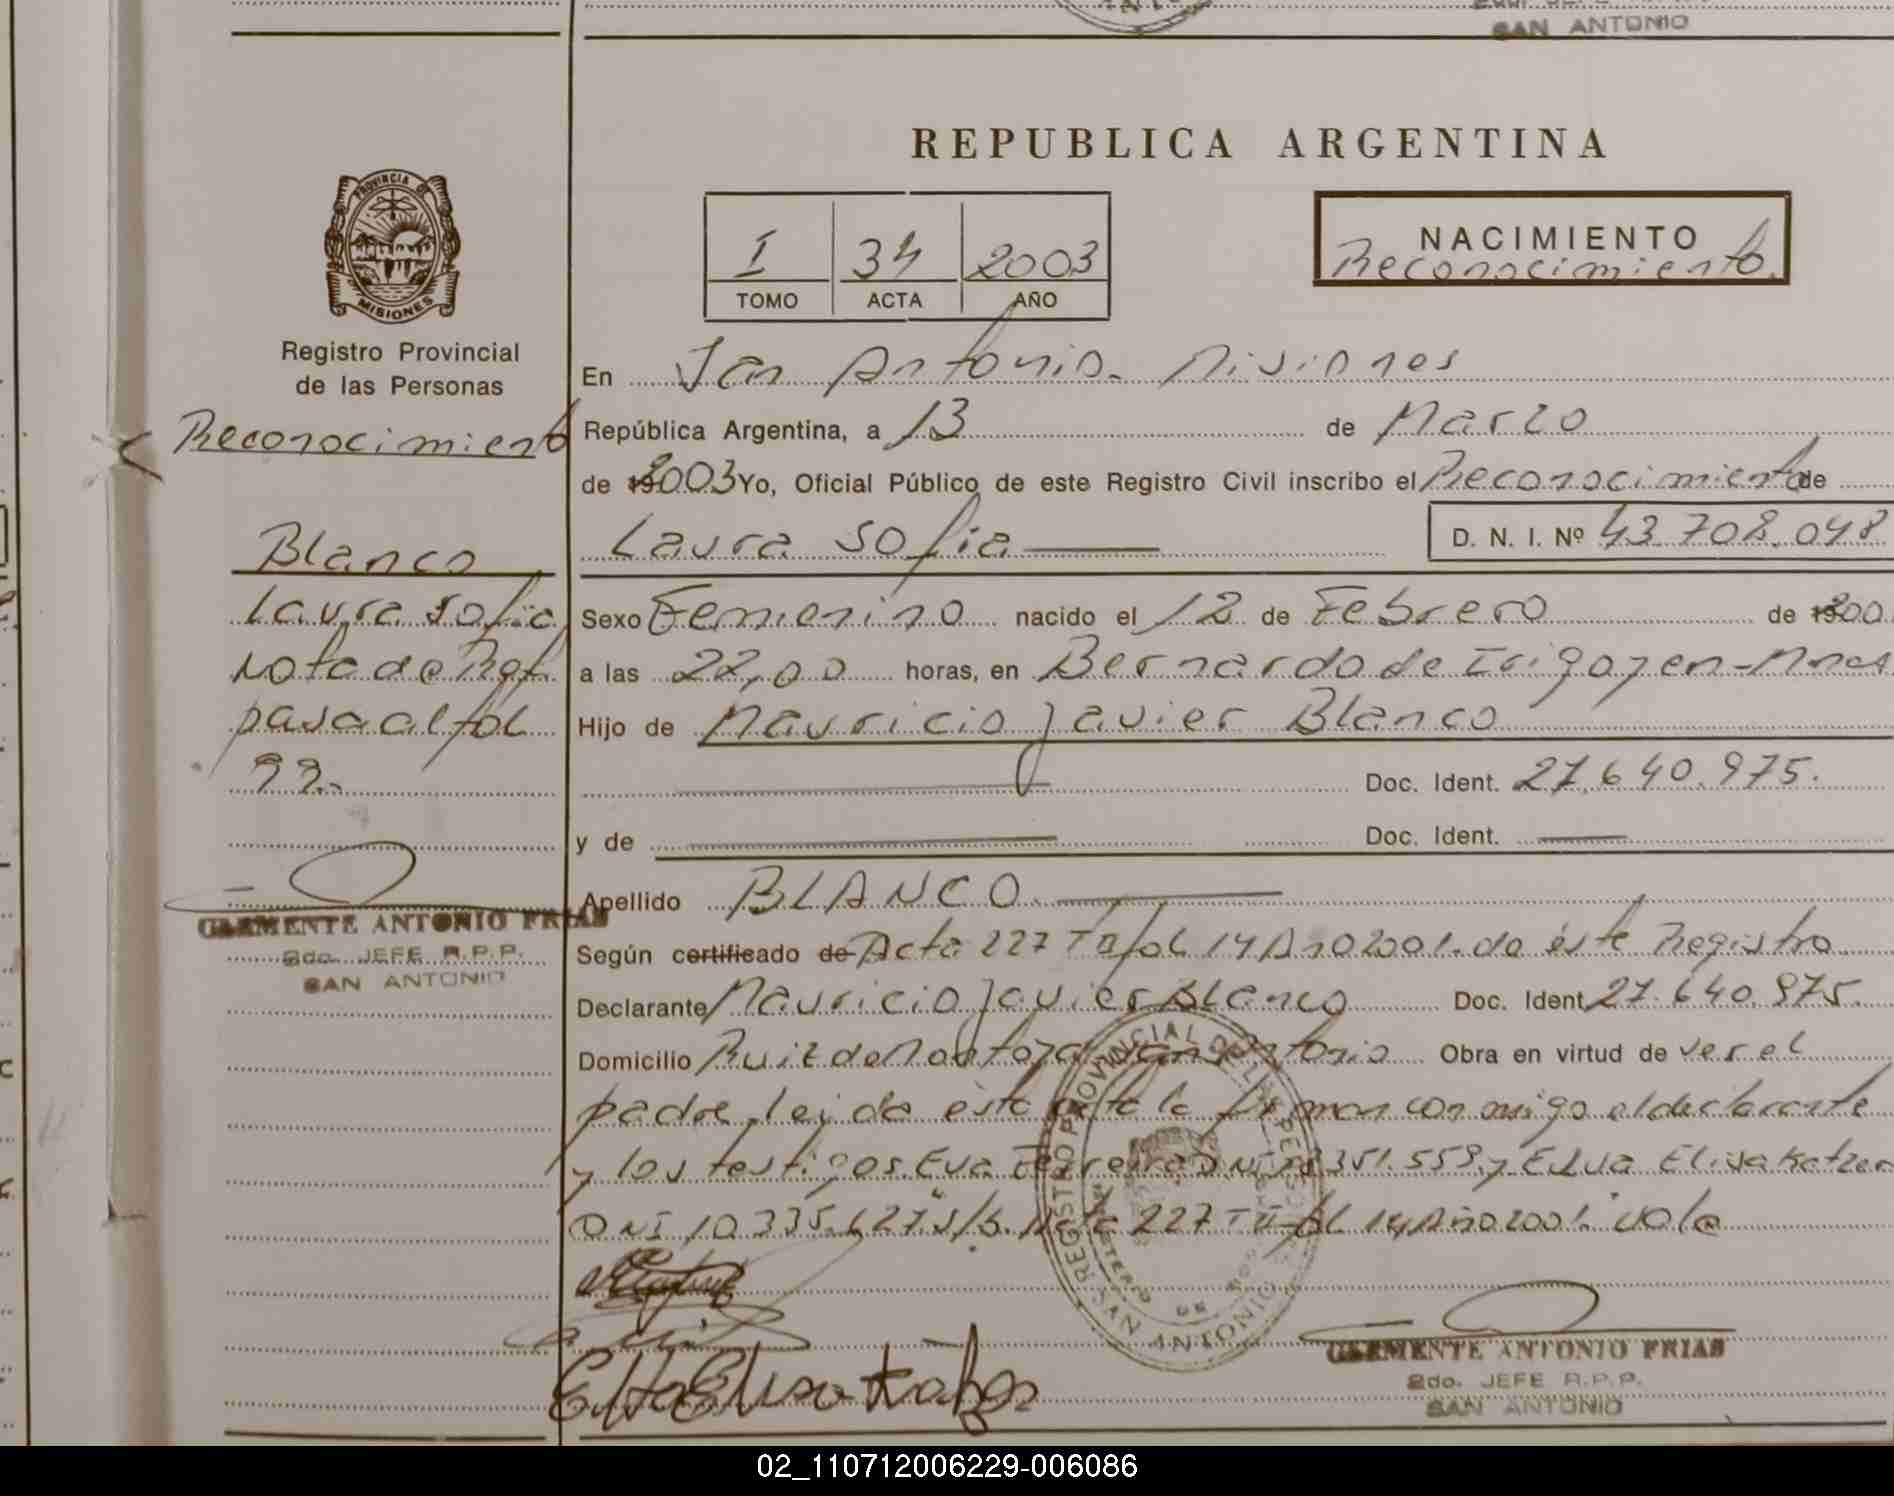 SAN ANTONIO
REPUBLICA ARGENTINA
PROVINCIA DE
MISIONES
Registro Provincial
de las Personas
I 34 2003
TOMO ACTA AÑO
NACIMIENTO
Reconocimiento.
En San Antonio. Misiones
República Argentina, a 13 de Marzo
Reconocimiento
de 2003 Yo, Oficial Público de este Registro Civil inscribo el Reconocimiento de
Laura Sofia
D. N. I. Nº 43.708.048
Blanco
Laura Sofia
Nota de Ref.
pasa al fol
99.-
Sexo Femenino nacido el 12 de Febrero de 200
a las 22,00 horas, en Bernardo de Irigoyen - Mnes
Hijo de Mauricio Javier Blanco
Doc. Ident. 27.640.975.
y de Doc. Ident.
Apellido BLANCO.
CLEMENTE ANTONIO FRIAS
2do. JEFE R.P.P.
SAN ANTONIO
Según certificado de Acta 227 fol 14 Año 2001. de éste Registro
Declarante Mauricio Javier Blanco Doc. Ident. 27.640.975.
Domicilio Ruiz de Montoya San Antonio Obra en virtud de ser el
padre, leida esta acta la firman conmigo el declarante
y los testigos. Eva Ferreira D.NI 351.559. y Elva Elisa Katzer
DNI 10.335.627. s/b. Acta 227 fol 14 Año 2001. vale
REGISTRO PROVINCIAL DE LAS PERSONAS
SAN ANTONIO
Elisa
CLEMENTE ANTONIO FRIAS
2do. JEFE R.P.P.
SAN ANTONIO
02_110712006229-006086